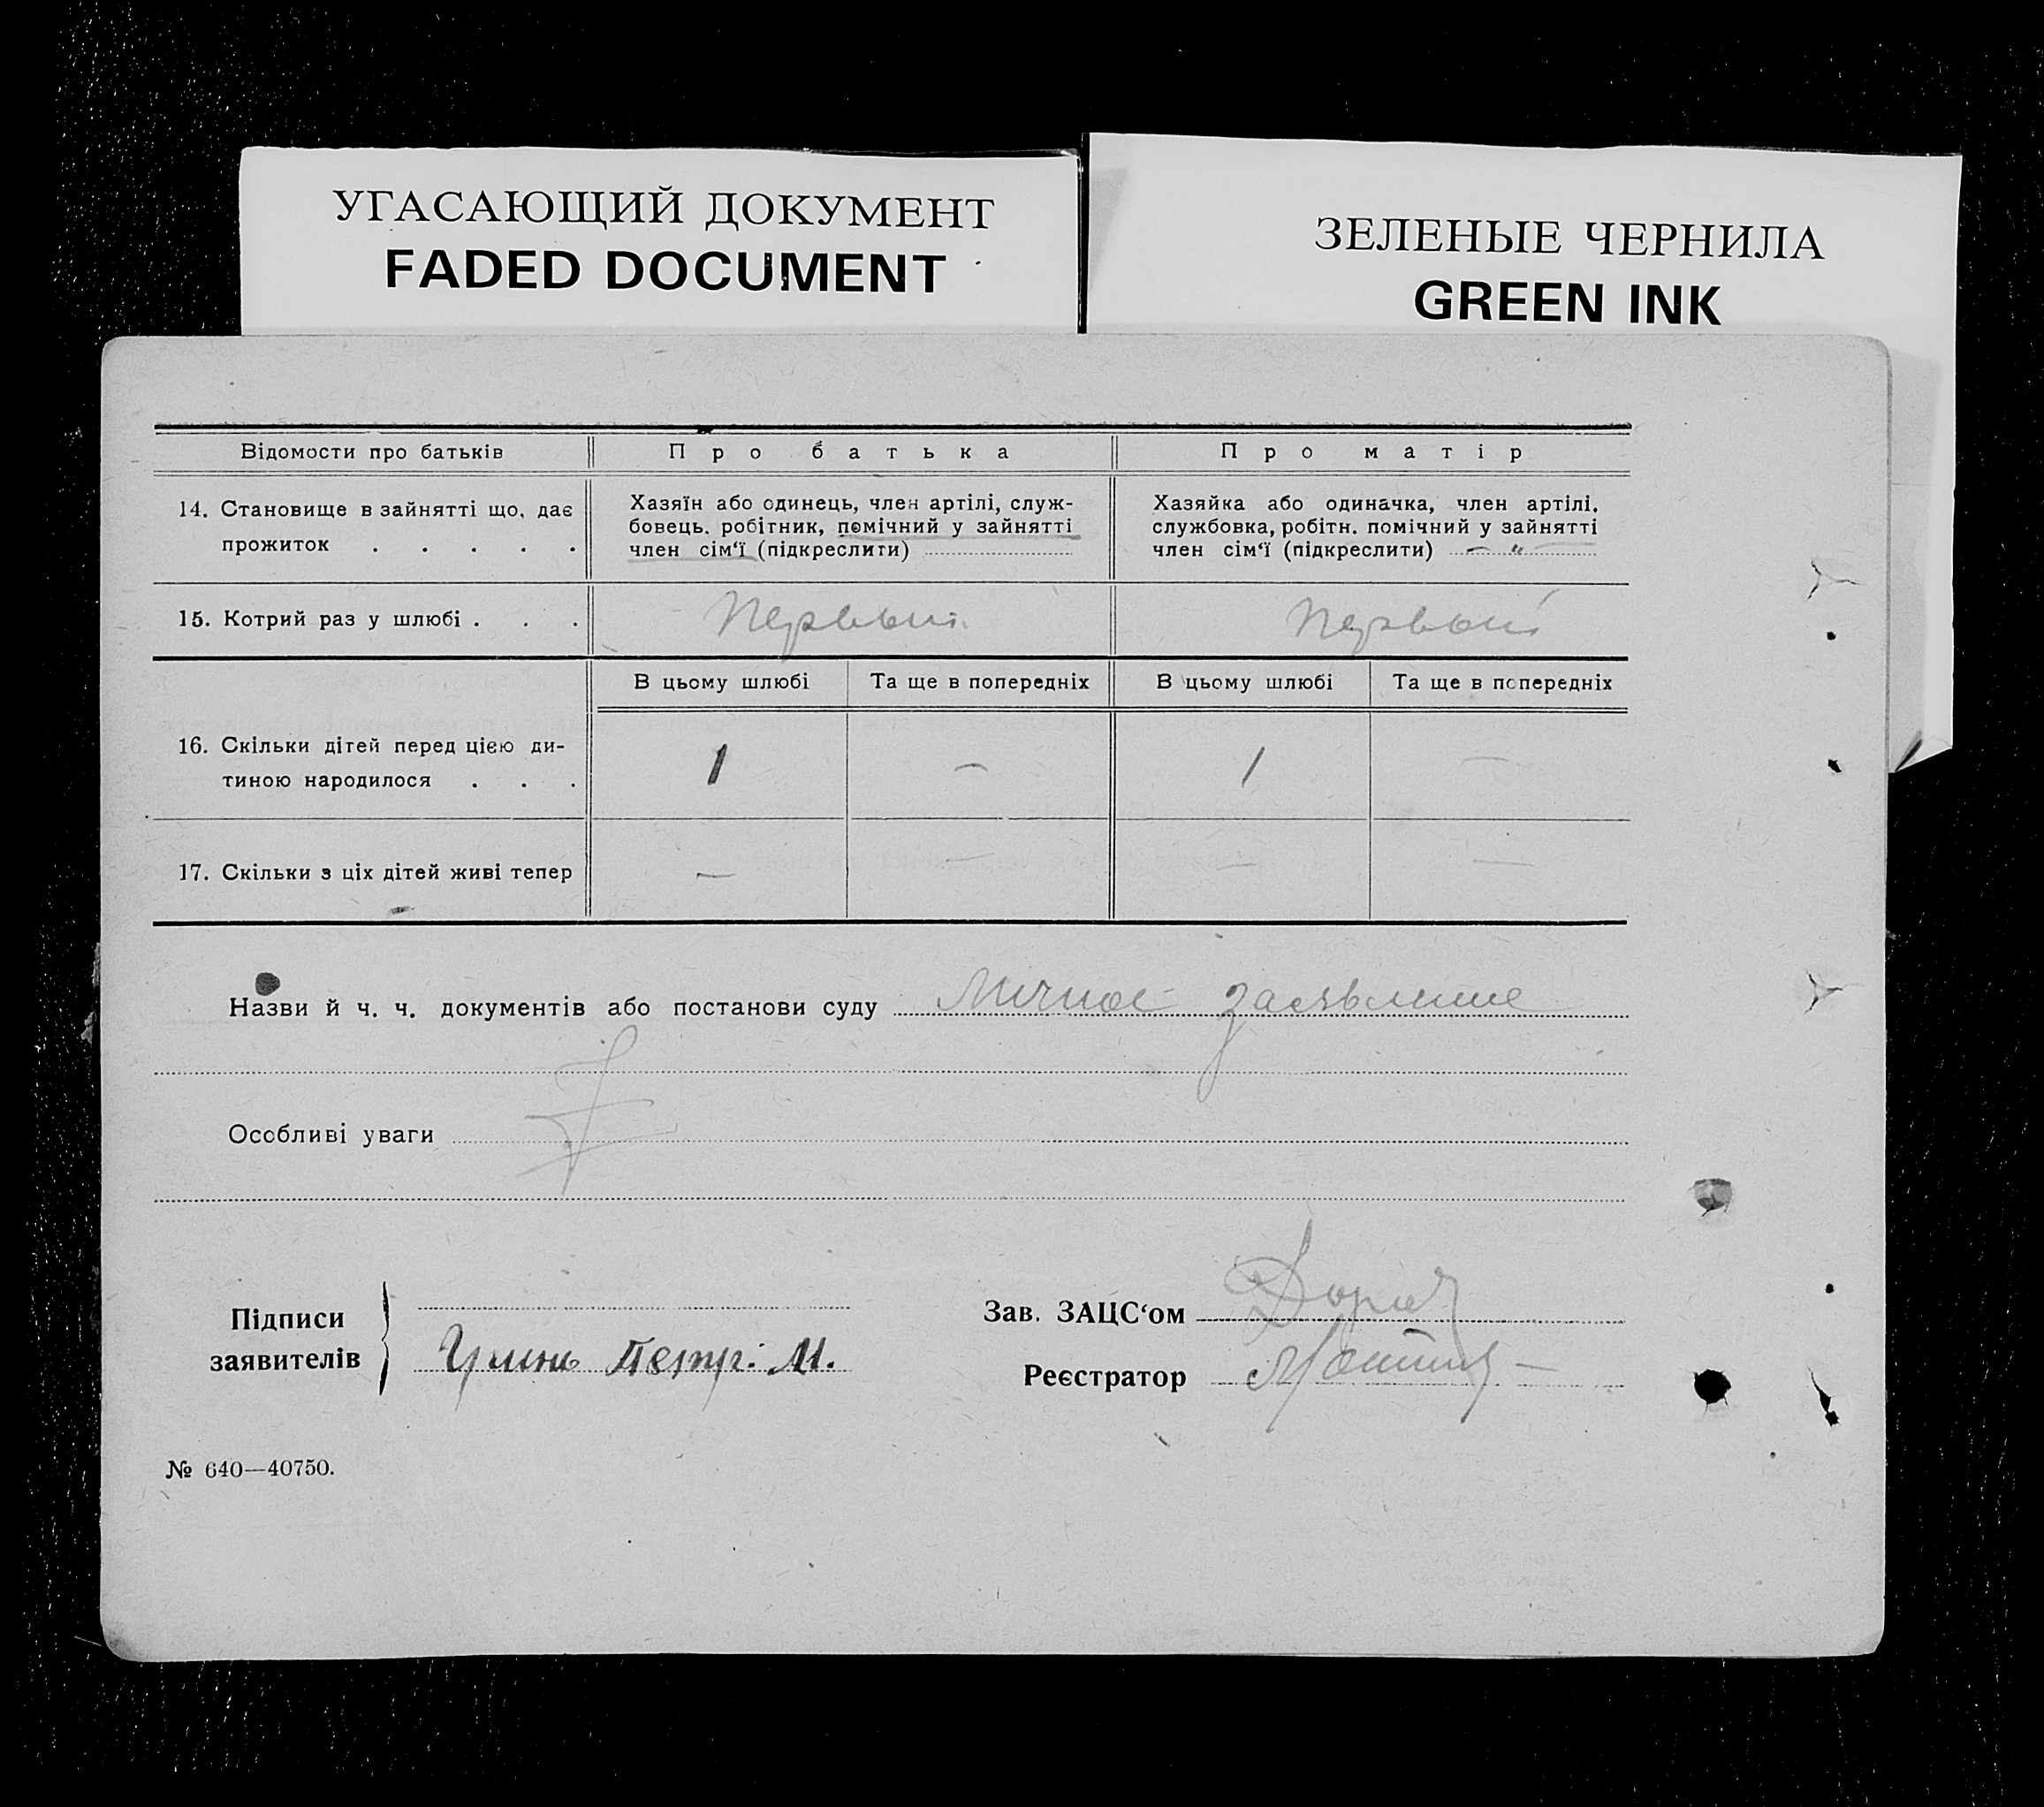 УГАСАЮЩИЙ ДОКУМЕНТ
FADED DOCUMENT
ЗЕЛЕНЫЕ ЧЕРНИЛА
GREEN INK
Відомости про батьків
Про батька
Про матір
14. Становище в зайнятті що, дає
прожиток . . . . .
Хазяїн або одинець, член артілі, служ-
бовець, робітник, помічний у зайнятті
член сім‘ї (підкреслити)
Хазяйка або одиначка, член артілі,
службовка, робітн. помічний у зайнятті
член сім‘ї (підкреслити) — „ —
15. Котрий раз у шлюбі . . .
Первый
Первый
В цьому шлюбі
Та ще в попередніх
В цьому шлюбі
Та ще в попередніх
16. Скільки дітей перед цією ди-
тиною народилося . . .
1
—
1
—
17. Скільки з ціх дітей живі тепер
—
—
—
—
Назви й ч. ч. документів або постанови суду Личное заявление
Особливі уваги
Підписи
заявителів
Петр. М.
Зав. ЗАЦС‘ом
Реєстратор
№ 640—40750.